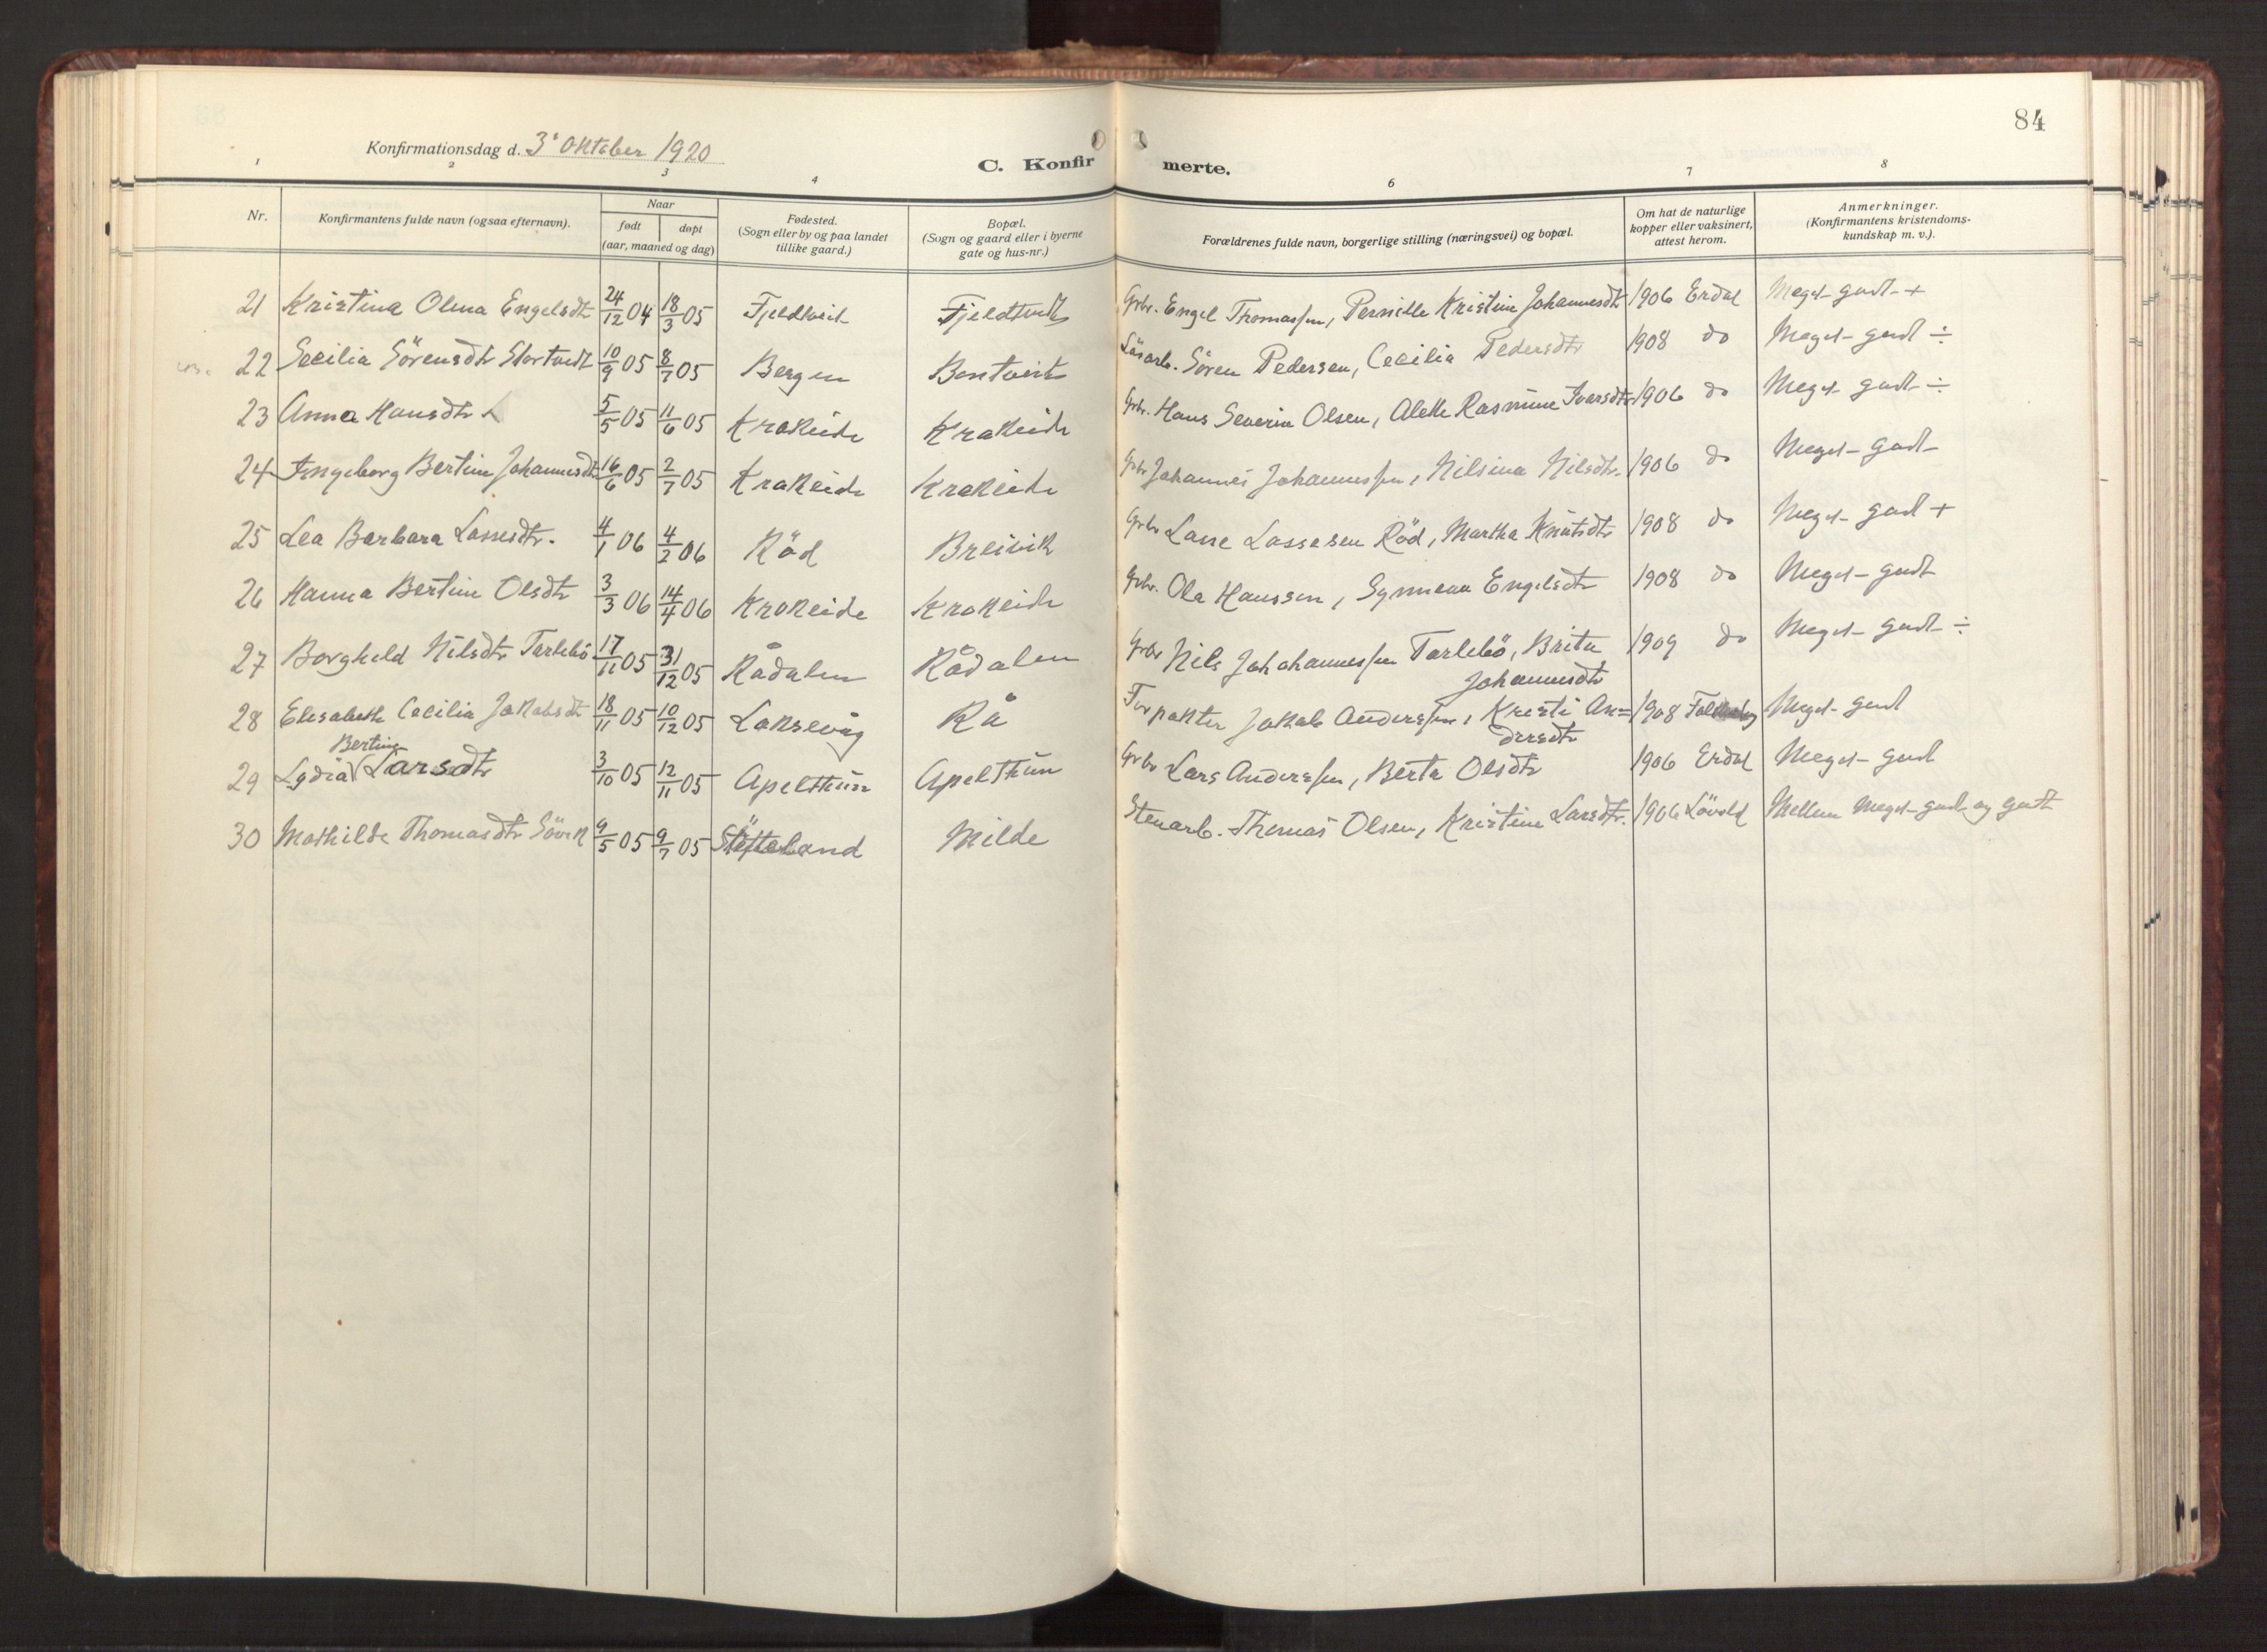 84
Konfirmationsdag d. 3' Oktober 1920
C. Konfirmerte.
1 2 3 4 6 7 8
Nr.
Konfirmantens fulde navn (ogsaa efternavn).
Naar
født døpt
(aar, maaned og dag)
Fødested.
(Sogn eller by og paa landet
tillike gaard.)
Bopæl.
(Sogn og gaard eller i byerne
gate og hus-nr.)
Forældrenes fulde navn, borgerlige stilling (næringsvei) og bopæl.
Om hat de naturlige
kopper eller vaksinert,
attest herom.
Anmerkninger.
(Konfirmantens kristendoms-
kundskap m. v.).
21 Kristina Olma Engelsdtr 24/12 04 18/3 05 Fjeldtveit Fjeldtveit Grbr. Engel Thomassen, Pernille Kristine Johannesdtr 1906 Erdal Meget godt +
22 Secilia Sörensdtr Stortveit 10/9 05 8/7 05 Bergen Bontveit Lösarb. Sören Pedersen, Cecilia Pedersdtr 1908 do Meget godt ÷
23 Anna Hansdtr 5/5 05 11/6 05 Krokeide Krokeide Grbr. Hans Severin Olsen, Alette Rasmine Ivarsdtr 1906 do Meget godt ÷
24 Ingeborg Bertine Johannesdtr 16/6 05 2/7 05 Krokeide Krokeide Grbr Johannes Johannessen, Nilsina Nilsdtr. 1906 do Meget godt
25 Lea Barbara Lassesdtr. 4/1 06 4/2 06 Röd Breivik Grbr Lasse Lassesen Röd, Martha Knutsdtr 1908 do Meget godt +
26 Hanna Bertine Olsdtr 3/3 06 14/4 06 Krokeide Krokeide Grbr. Ola Hanssen, Synneva Engelsdtr 1908 do Meget godt
27 Borghild Nilsdtr Tarlebö 17/11 05 31/12 05 Rådalen Rådalen Grbr Nils Johohannessen Tarlebö, Brita 1909 do Meget godt ÷
Johannesdtr
28 Elisabeth Cecilia Jakobsdt 18/11 05 10/12 05 Laksevåg Rå Forpakter Jakob Anderssen, Kristi An= 1908 Meget godt
dersdtr
Bertine
29 Lydia V Larsdtr 3/10 05 12/11 05 Apelthun Apelthun Grbr Lars Anderssen, Berta Olsdtr 1906 Erdal Meget godt
30 Mathilde Thomasdtr Sövik 9/5 05 9/7 05 Milde Stenarb. Thomas Olsen, Kristine Larsdtr. 1906 Lövold Mellem Meget godt og godt